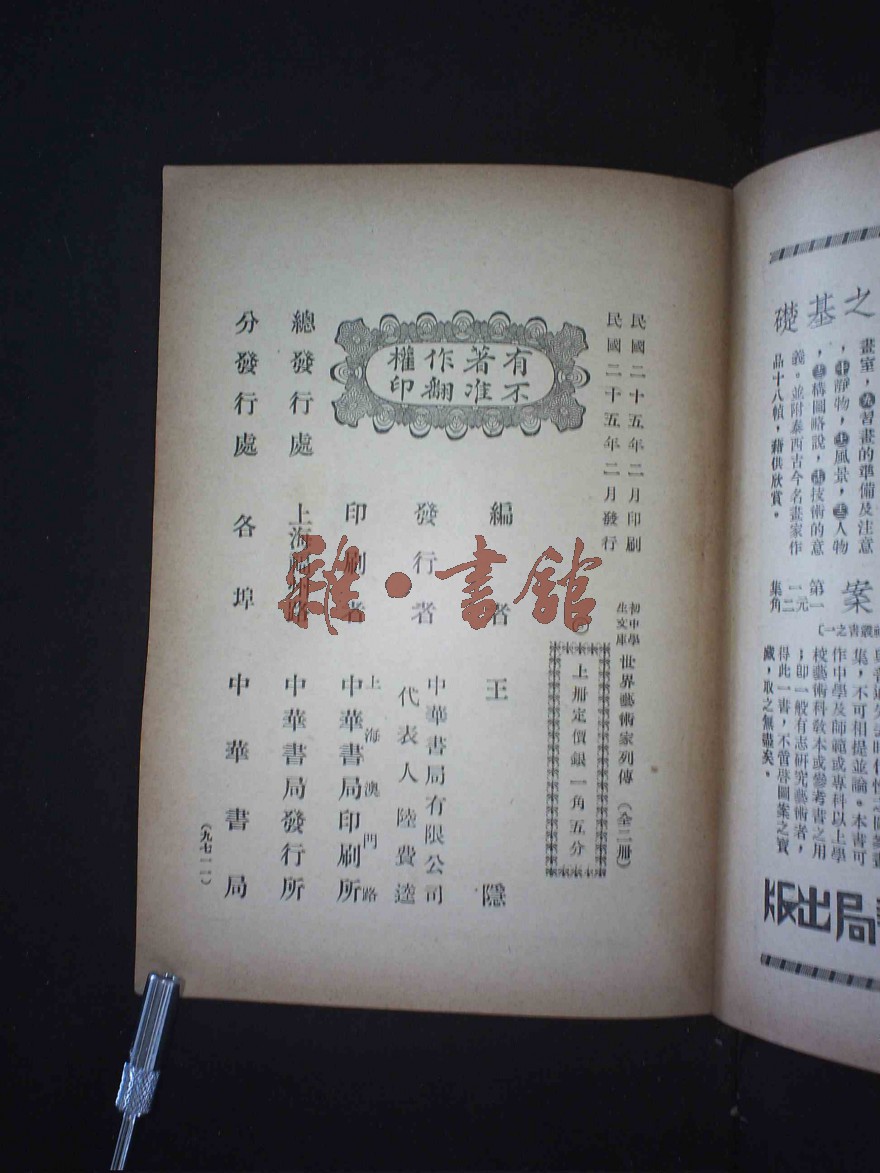 民國二十五年二月印刷
民國二十五年二月發行
初中學生文庫 世界藝術家列傳（全二册）
上册定價銀一角五分
有著作權
不准翻印
編者 王隱
發行者 中華書局有限公司
代表人 陸費逵
印刷者 上海澳門路
中華書局印刷所
總發行處 上海 路 中華書局發行所
分發行處 各埠 中華書局
（九七一一）
雜·書館
之基礎
畫室，㊈習畫的準備及注意
靜物， 風景， 人物
， 構圖略說， 技術的意
義。並附泰西古今名畫家作
品十八幀，藉供欣賞。
案
第一集 一元二角
叢書之一〕
集，不可相提並論。本書可
作中學及師範或專科以上學
校藝術科教本或參考書之用
；即一般有志研究藝術者，
得此一書，不啻啓圖案之寶
藏，取之無盡矣。
局出版